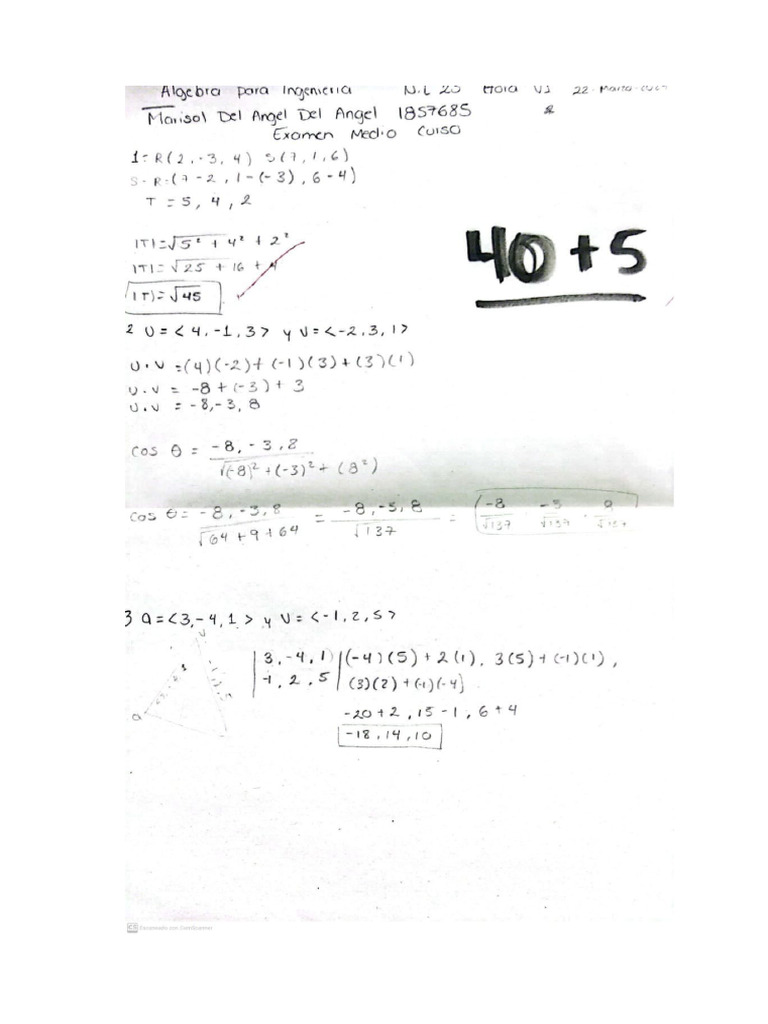 Algebra para Ingenieria N.L 20 Hora V3 22-Marzo
Marisol Del Angel Del Angel 1857685
Examen Medio Curso
1= R(2,-3,4) S(7,1,6)
S-R=(7-2, 1-(-3), 6-4)
T = 5, 4, 2
|T|=√5² + 4² + 2²
|T|=√25 + 16 + 4
|T|=√45
40 + 5
2 U=<4,-1,3> y V=<-2,3,1>
U·V=(4)(-2)+(-1)(3)+(3)(1)
U.V = -8+(-3)+3
U.V = -8,-3, 8
cos θ = -8,-3,8 / √(-8)²+(-3)²+(8²)
cos θ= -8,-3,8 / √64+9+64 = -8,-3,8 / √137 = (-8/√137
3 a=<3,-4,1> y V=<-1,2,5>
|3,-4,1|(-4)(5)+2(1), 3(5)+(-1)(1),
|-1,2,5|(3)(2)+(-1)(-4)
-20+2, 15-1, 6+4
-18,14,10
a
CS Escaneado con CamScanner